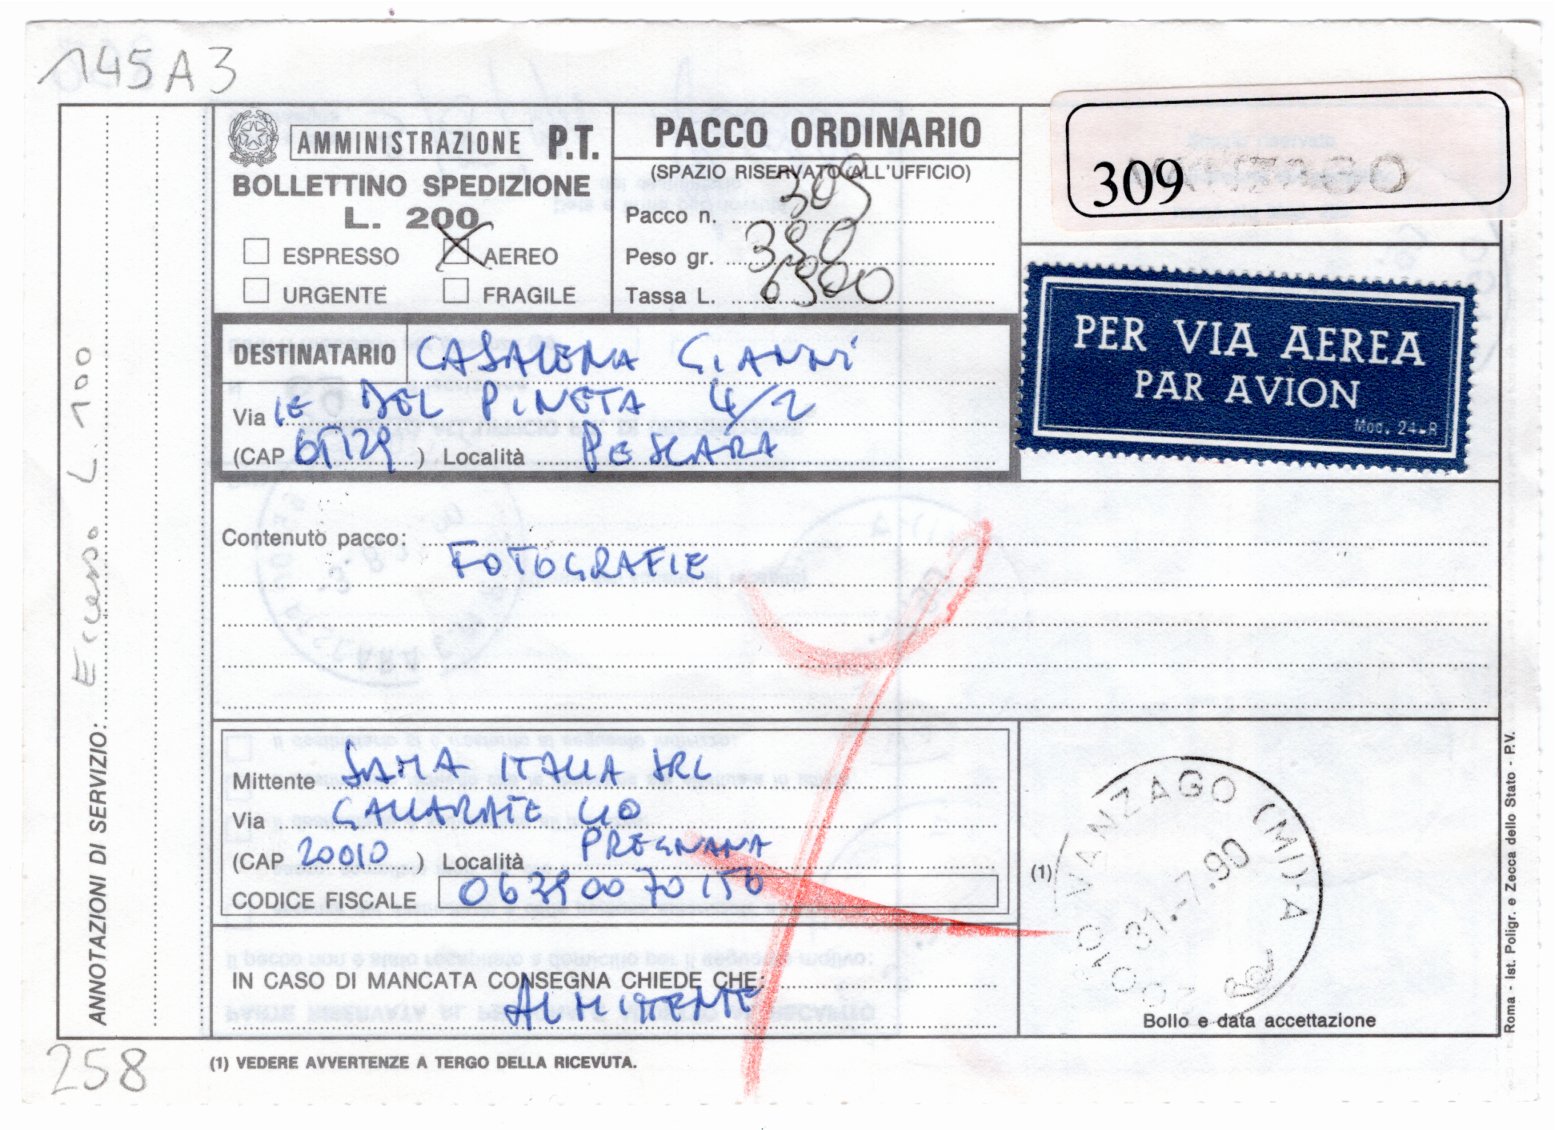 145A3
AMMINISTRAZIONE P.T.
BOLLETTINO SPEDIZIONE
L. 200
ESPRESSO AEREO
URGENTE FRAGILE
PACCO ORDINARIO
(SPAZIO RISERVATO ALL'UFFICIO)
Pacco n. 309
Peso gr. 390
Tassa L. 6300
309
VANZAGO
PER VIA AEREA
PAR AVION
Mod. 24-R
DESTINATARIO CASALENA GIANNI
Via LE DEL PINETA 4/2
(CAP 65129) Località PESCARA
Contenuto pacco:
FOTOGRAFIE
Mittente SAMA ITALIA SRL
Via GALLARATE 40
(CAP 20010) Località PREGNANA
CODICE FISCALE 06390070150
IN CASO DI MANCATA CONSEGNA CHIEDE CHE:
AL MITTENTE
(1)
20010 VANZAGO (MI)-A
31.-7.90
Bollo e data accettazione
ANNOTAZIONI DI SERVIZIO: Eccesso L. 100
Roma - Ist. Poligr. e Zecca dello Stato - P.V.
258
(1) VEDERE AVVERTENZE A TERGO DELLA RICEVUTA.